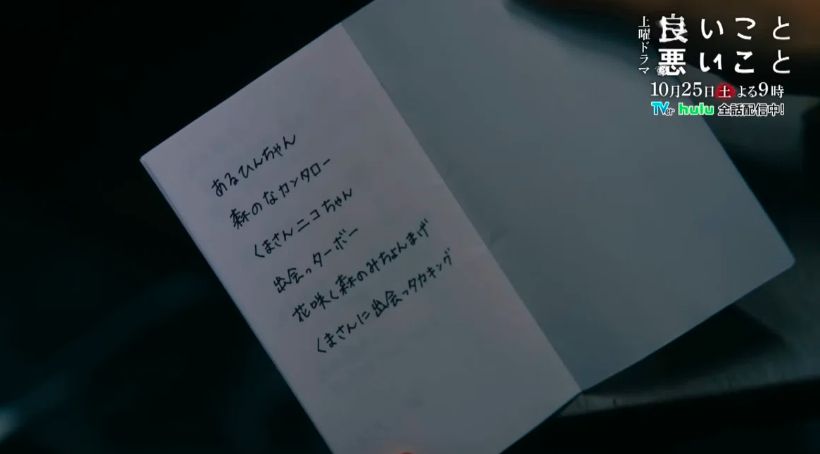 土曜ドラマ
良いこと
悪いこと
10月25日土よる9時
TVer hulu 全話配信中!
あるひんちゃん
森のなカンタロー
くまさんニコちゃん
出会っターボー
花咲く森のみちょんまげ
くまさんに出会っタカキング